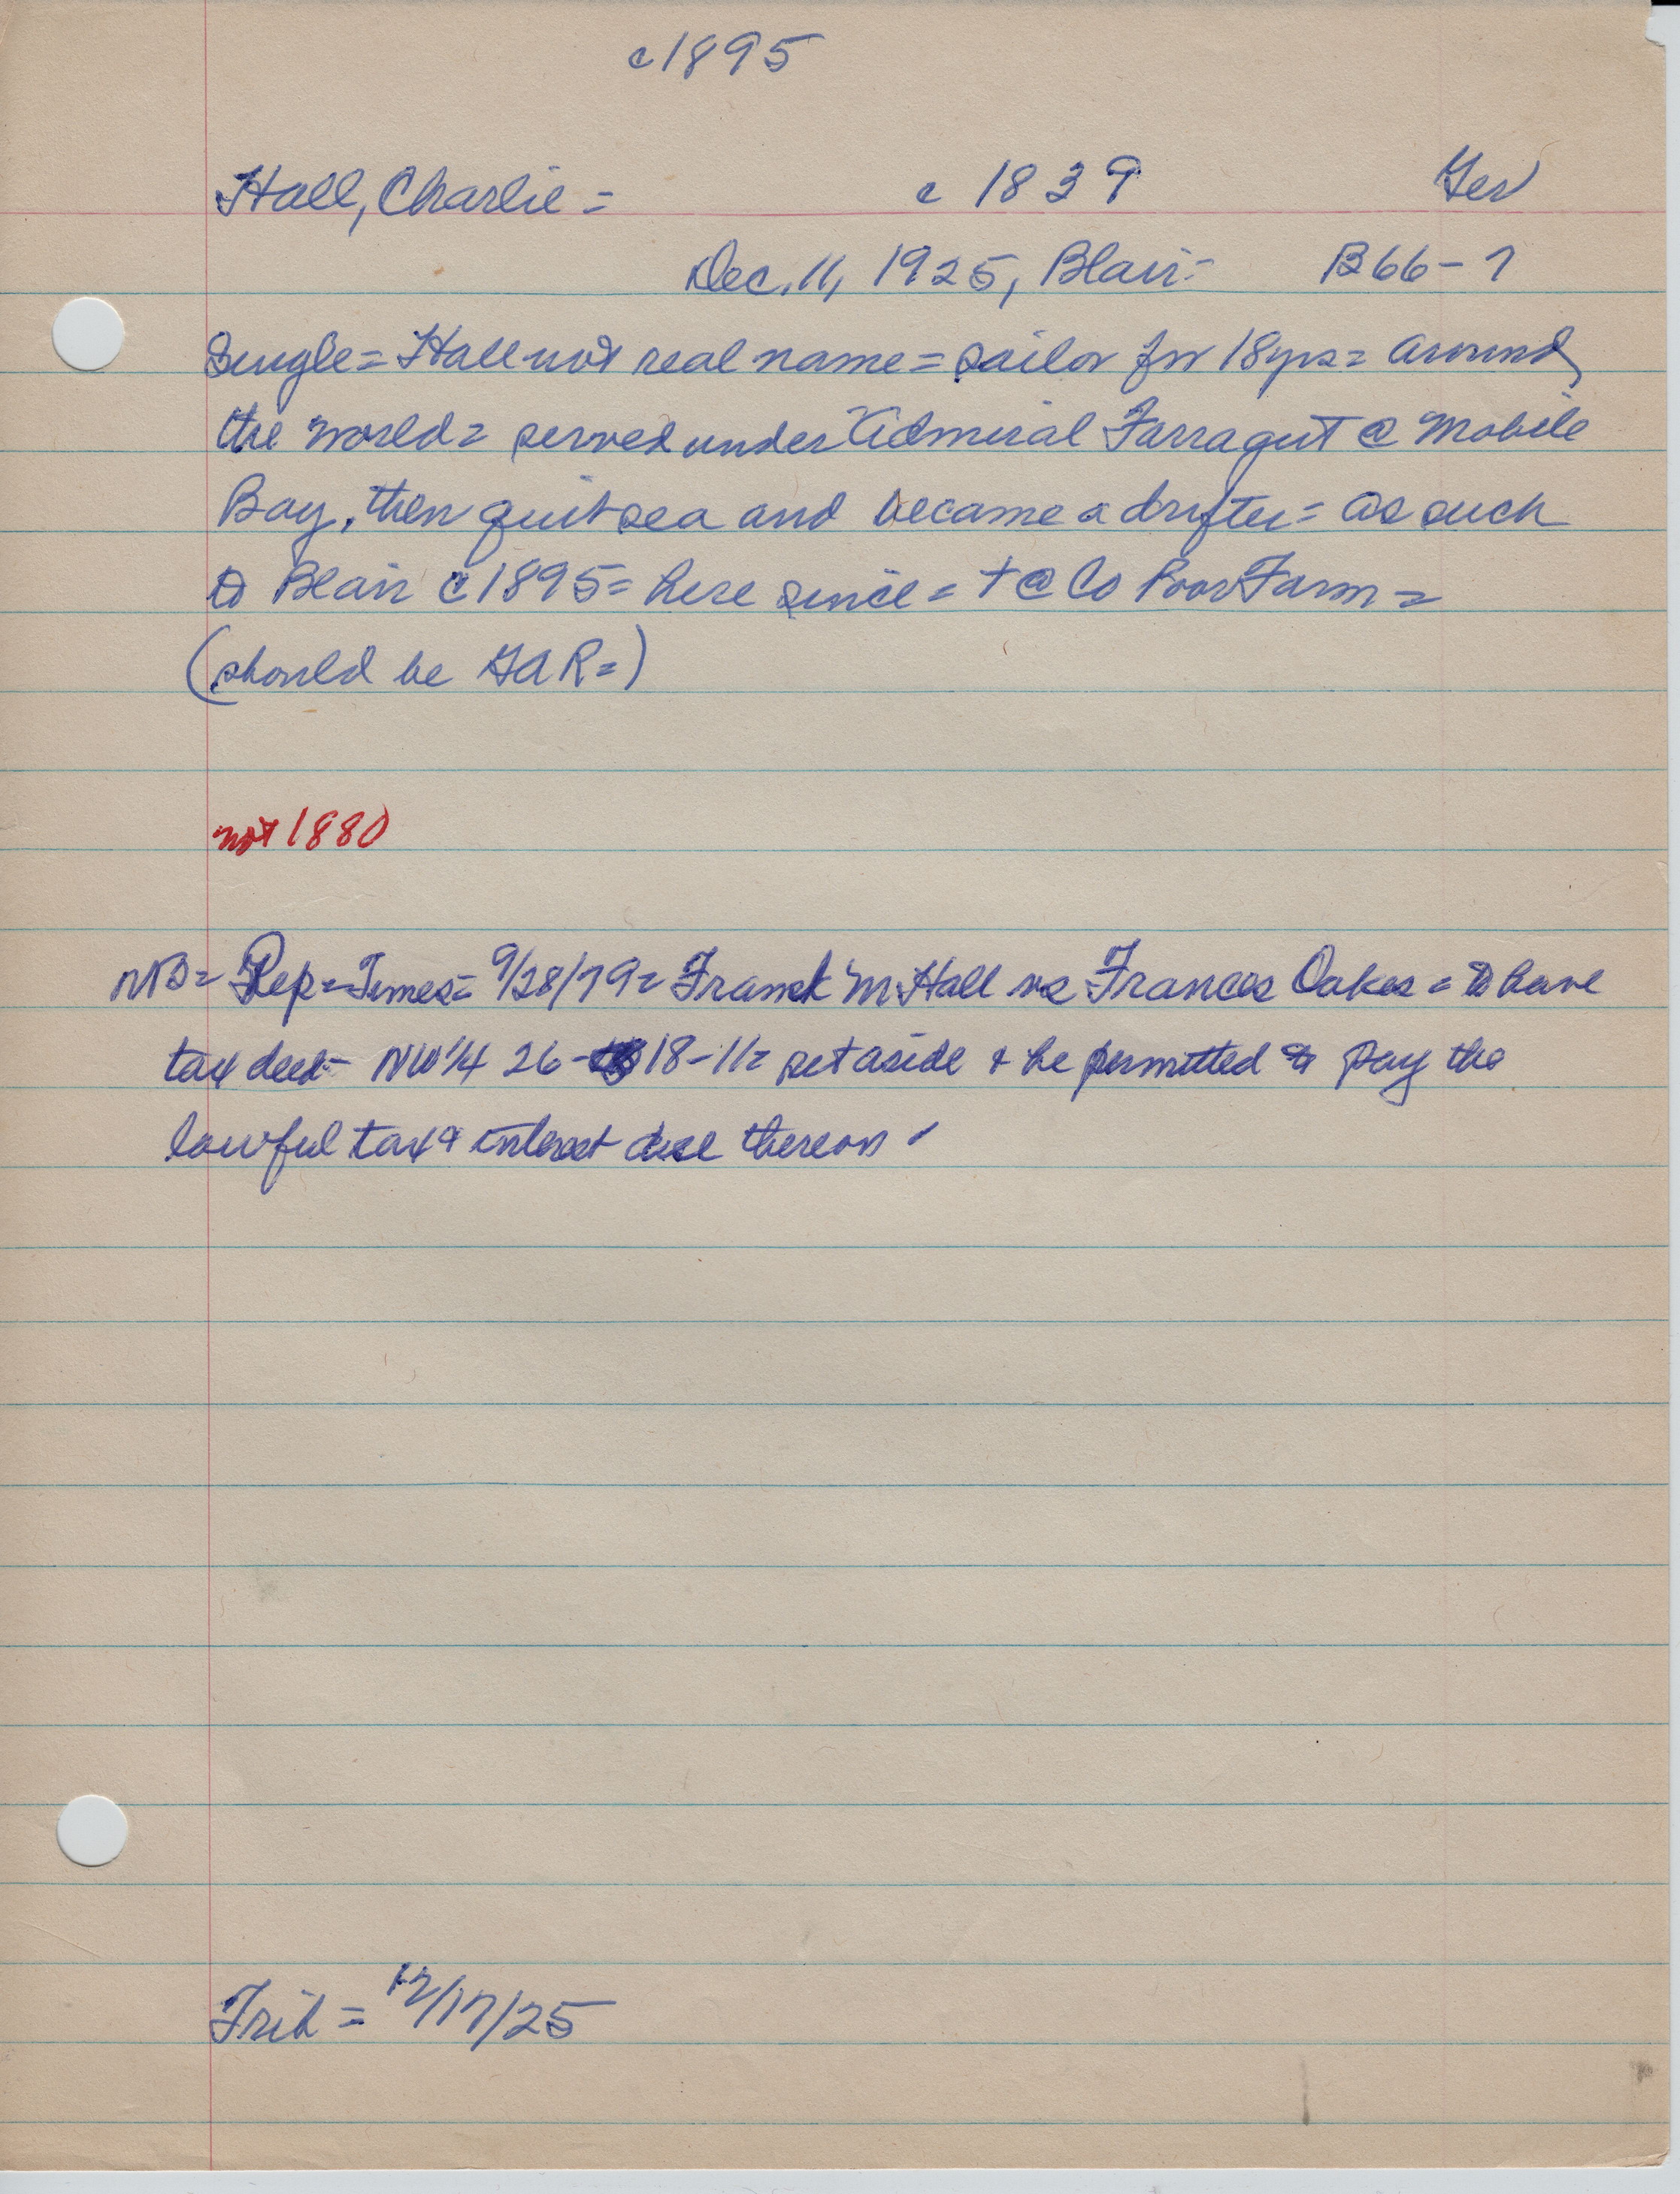 c1895
Hall, Charlie = c 1839 Ger
Dec. 11, 1925, Blair = B66-7
Single = Hall not real name = sailor for 18yrs = around
the world = served under Admiral Farragut @ Mobile
Bay, then quit sea and became a drifter = as such
to Blair c1895 = here since = + @ Co Poor Farm =
(should be GAR=)
not 1880
NB = Rep = Times = 9/28/79 = Frank M Hall vs Frances Oakes = to have
tax deed - NW 1/4 26 - 18-11 = set aside & he permitted to pay the
lawful tax & interest due thereon
Trib = 12/17/25